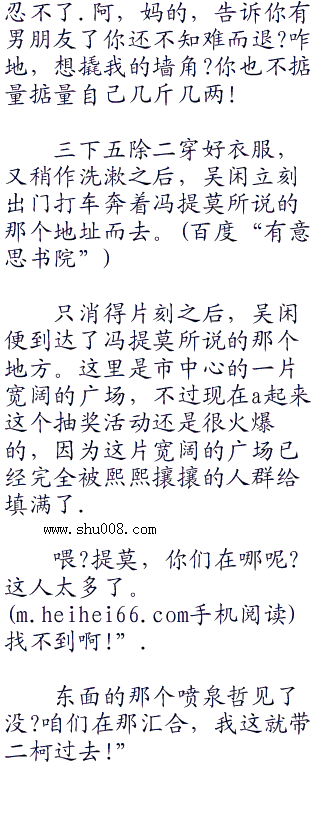 忍不了.阿，妈的，告诉你有
男朋友了你还不知难而退?咋
地，想撬我的墙角?你也不掂
量掂量自己几斤几两!
三下五除二穿好衣服，
又稍作洗漱之后，吴闲立刻
出门打车奔着冯提莫所说的
那个地址而去。(百度“有意
思书院”)
只消得片刻之后，吴闲
便到达了冯提莫所说的那个
地方。这里是市中心的一片
宽阔的广场，不过现在a起来
这个抽奖活动还是很火爆
的，因为这片宽阔的广场已
经完全被熙熙攘攘的人群给
填满了.
www.shu008.com
喂?提莫，你们在哪呢?
这人太多了。
(m.heihei66.com手机阅读)
找不到啊!”.
东面的那个喷泉哲见了
没?咱们在那汇合，我这就带
二柯过去!”